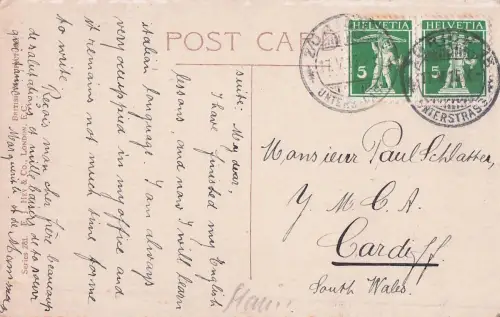 POST CARD
HELVETIA HELVETIA
5 5
UNTERSTRASS
suite: My dear,
I have finished my English
lessons, and now I will learn
italian language. I am always
very occupied in my office and
it remains not much time for me
to write.
Reçois mon cher frère beaucoup
de salutations et mille baisers de ta soeur
Marguerite
Monsieur Paul Schlatter,
Y. M. C. A.
Cardiff
South Wales.